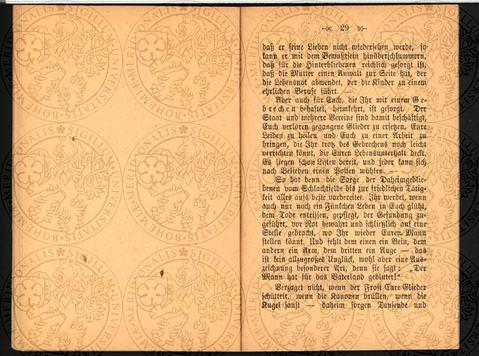 29
daß er seine Lieben nicht wiedersehen werde, so
kann er mit dem Bewußtsein hinüberschlummern,
daß für die Hinterbliebenen reichlich gesorgt ist,
daß die Mutter einen Anwalt zur Seite hat, der
die Lebensnot abwendet, der die Kinder zu einem
ehrlichen Berufe führt. —
Aber auch für Euch, die Ihr mit einem Ge-
brechen behaftet, heimkehrt, ist gesorgt. Der
Staat und mehrere Vereine sind damit beschäftigt,
Euch verloren gegangene Glieder zu ersetzen, Eure
Leiden zu heilen und Euch zu einer Arbeit zu
bringen, die Ihr trotz des Gebrechens noch leicht
verrichten könnt, die Euren Lebensunterhalt deckt.
Es liegen schon Listen bereit, und jeder kann sich
nach Belieben einen Posten wählen. —
So hat denn die Sorge der Daheimgeblie-
benen vom Schlachtfelde bis zur friedlichen Tätig-
keit alles aufs beste vorbereitet. Ihr werdet, wenn
auch nur noch ein Fünkchen Leben in Euch glüht,
dem Tode entrissen, gepflegt, der Gesundung zu-
geführt, vor Not bewahrt und schließlich auf eine
Stelle gebracht, wo Ihr wieder Euren Mann
stellen könnt. Und fehlt dem einen ein Bein, dem
andern ein Arm, dem dritten ein Auge — das
ist kein allzugroßes Unglück, wohl aber eine Aus-
zeichnung besonderer Art, denn sie sagt: „Der
Mann hat für das Vaterland geblutet!“
Verzaget nicht, wenn der Frost Eure Glieder
schüttelt, wenn die Kanonen brüllen, wenn die
Kugel saust — daheim sorgen Tausende und